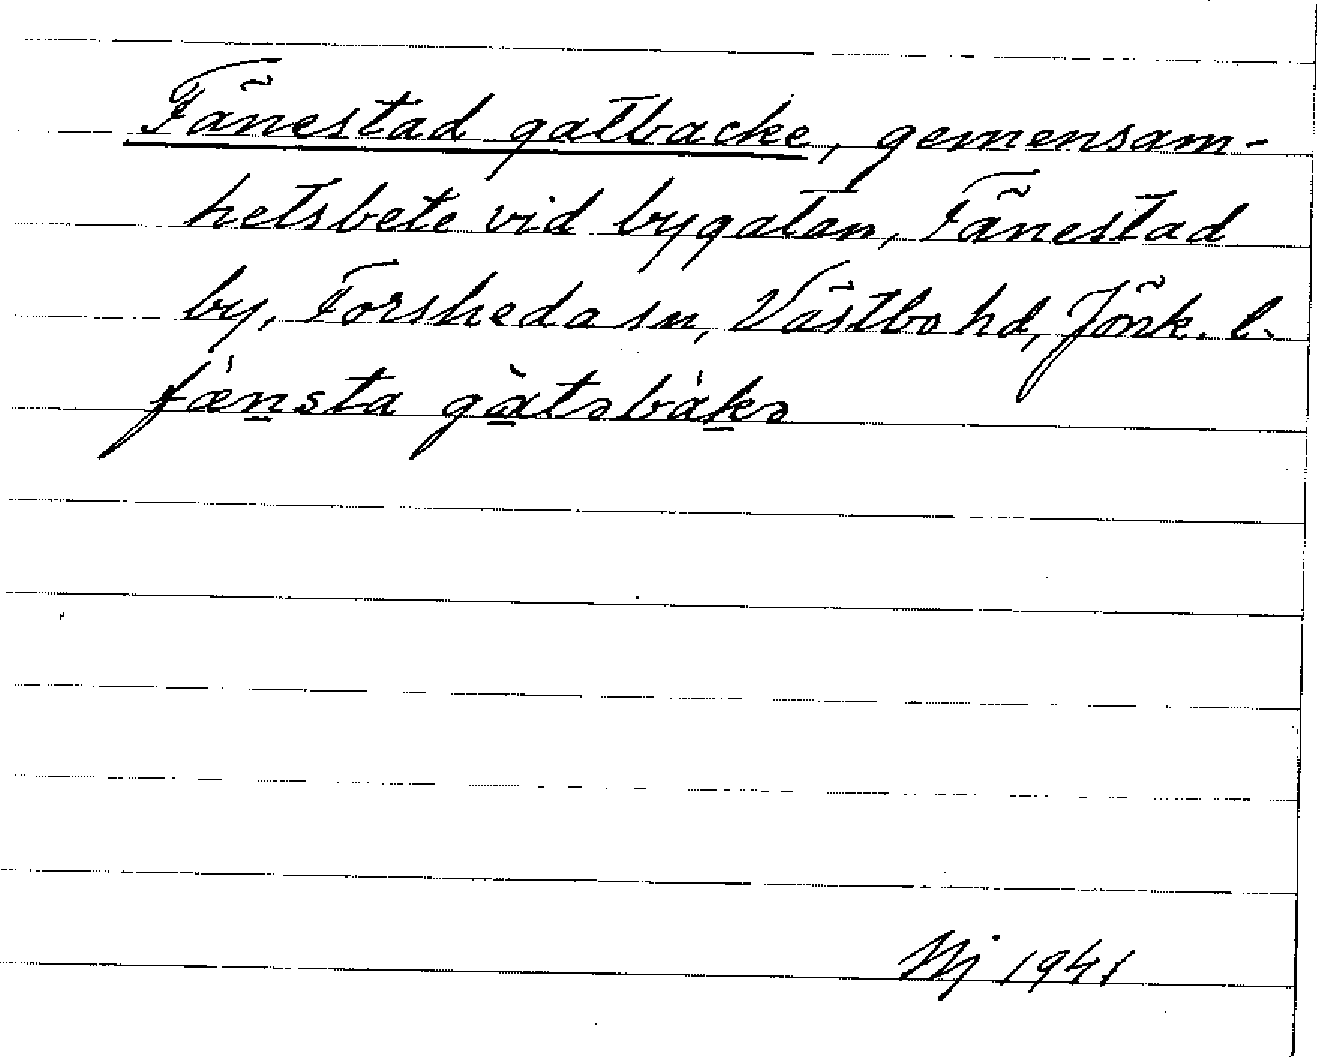 Fänestad gatbacke, gemensam-
hetsbete vid bygatan, Fänestad
by, Forsheda sn, Västbo hd, Jönk. l.
fæ̀nsta gàtsbàkə
Mj 1941